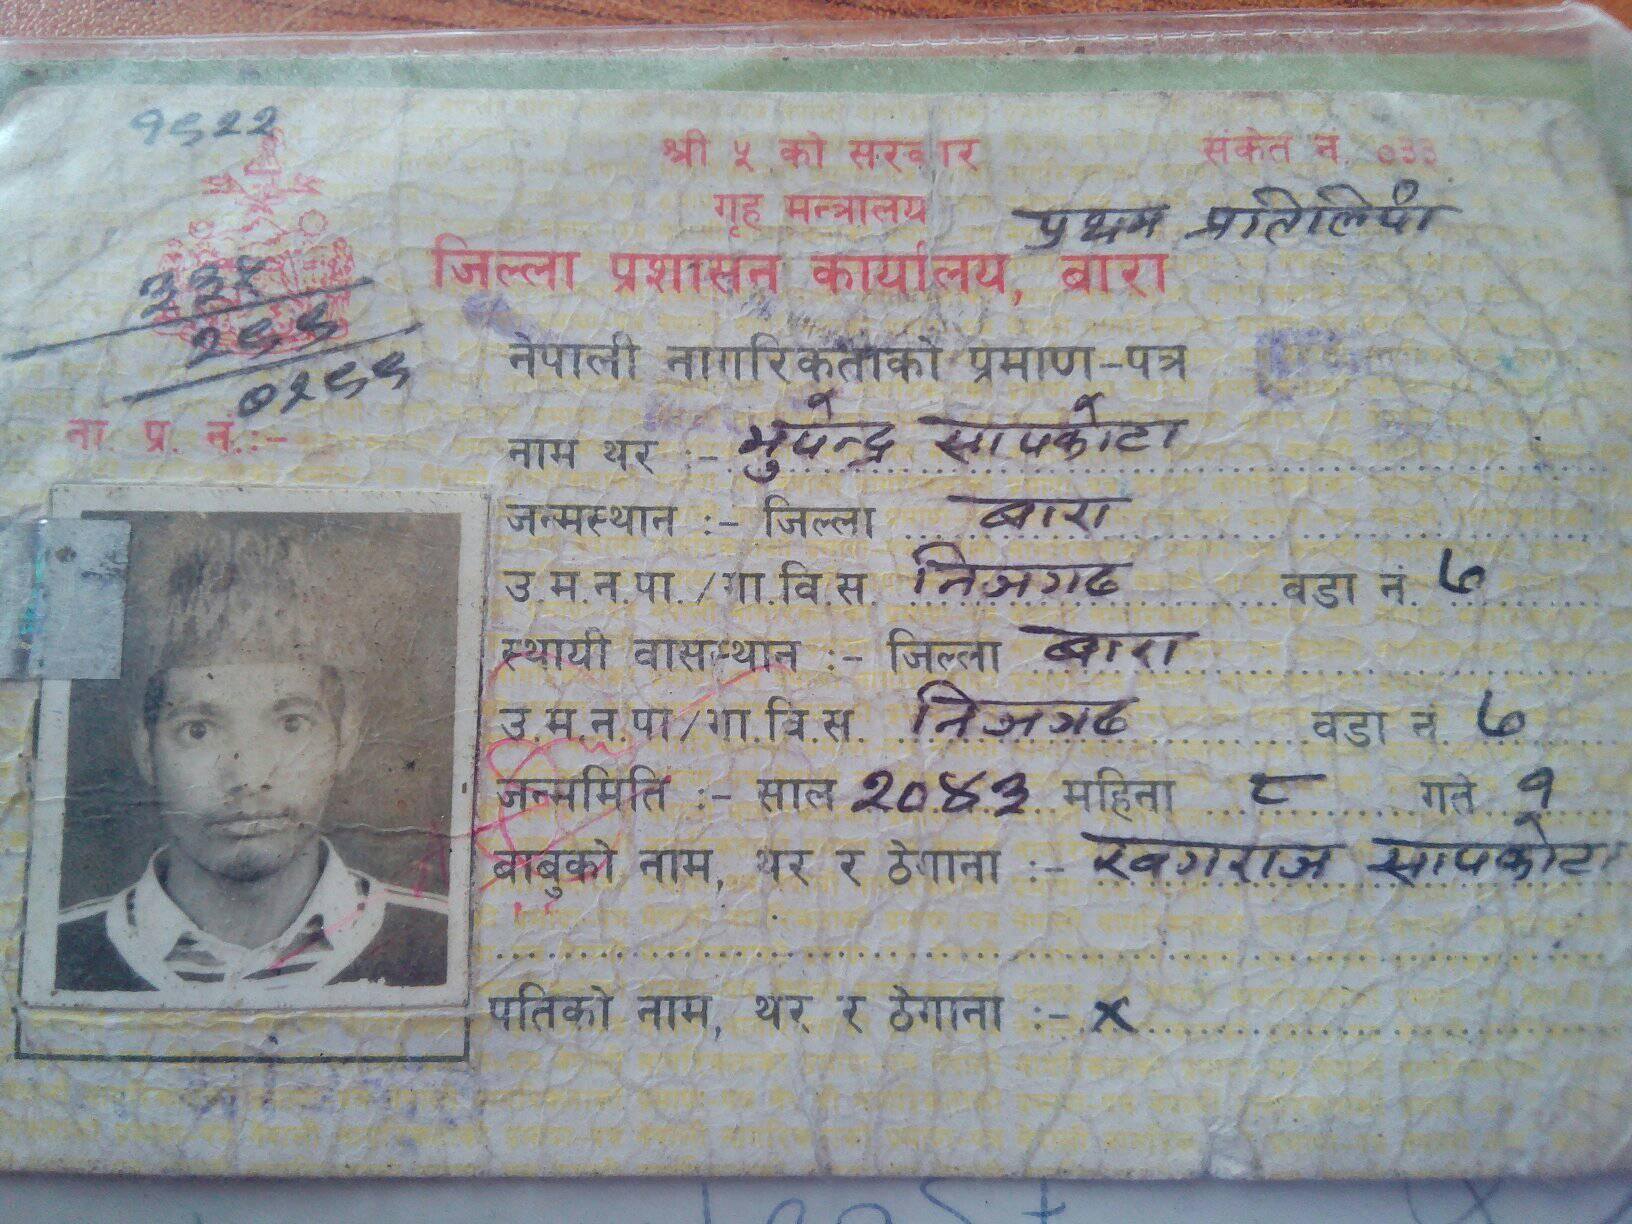 १९२२
श्री ५ को सरकार
संकेत नं. ०३३
गृह मन्त्रालय
प्रथम प्रतिलिपी
जिल्ला प्रशासन कार्यालय, बारा
नेपाली नागरिकताको प्रमाण-पत्र
ना. प्र. नं.:-
नाम थर :- भुपेन्द्र सापकोटा
जन्मस्थान :- जिल्ला बारा
उ.म.न.पा./गा.वि.स. निजगढ वडा नं. ७
स्थायी वासस्थान :- जिल्ला बारा
उ.म.न.पा/गा.वि.स. निजगढ वडा नं. ७
जन्ममिति :- साल २०४३ महिना ८ गते १
बाबुको नाम, थर र ठेगाना :- खगराज सापकोटा
पतिको नाम, थर र ठेगाना :- x